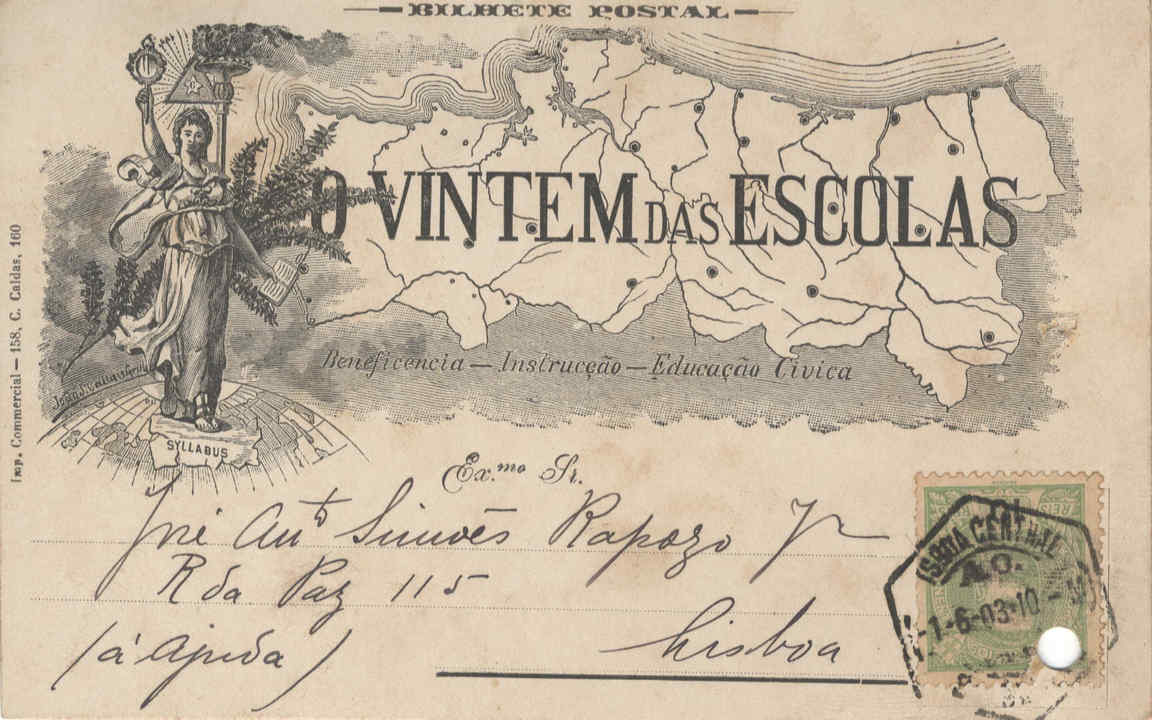 BILHETE POSTAL
O VINTEM DAS ESCOLAS
Beneficencia — Instrucção — Educação Civica
Imp. Commercial — 158, C. Caldas, 160
SYLLABUS
Ex.mo Sr.
José Antº Simões Rapozo Jr
R da Paz 115
(á Ajuda)
Lisboa
LISBOA CENTRAL
1-6-03